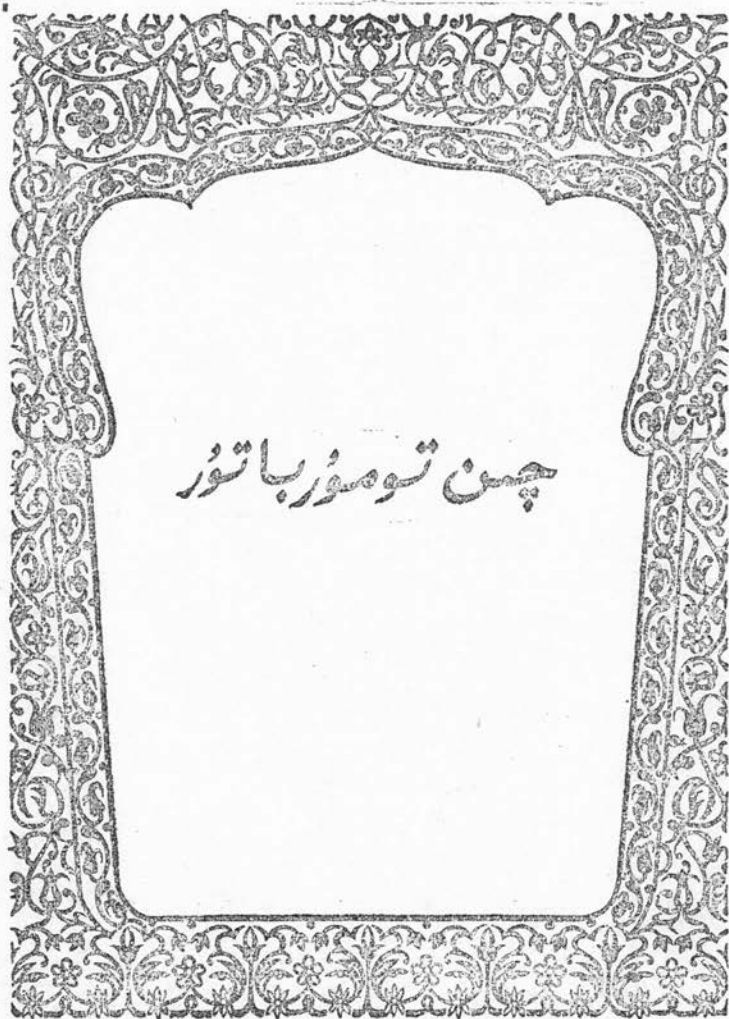 چىن تومۇر باتۇر